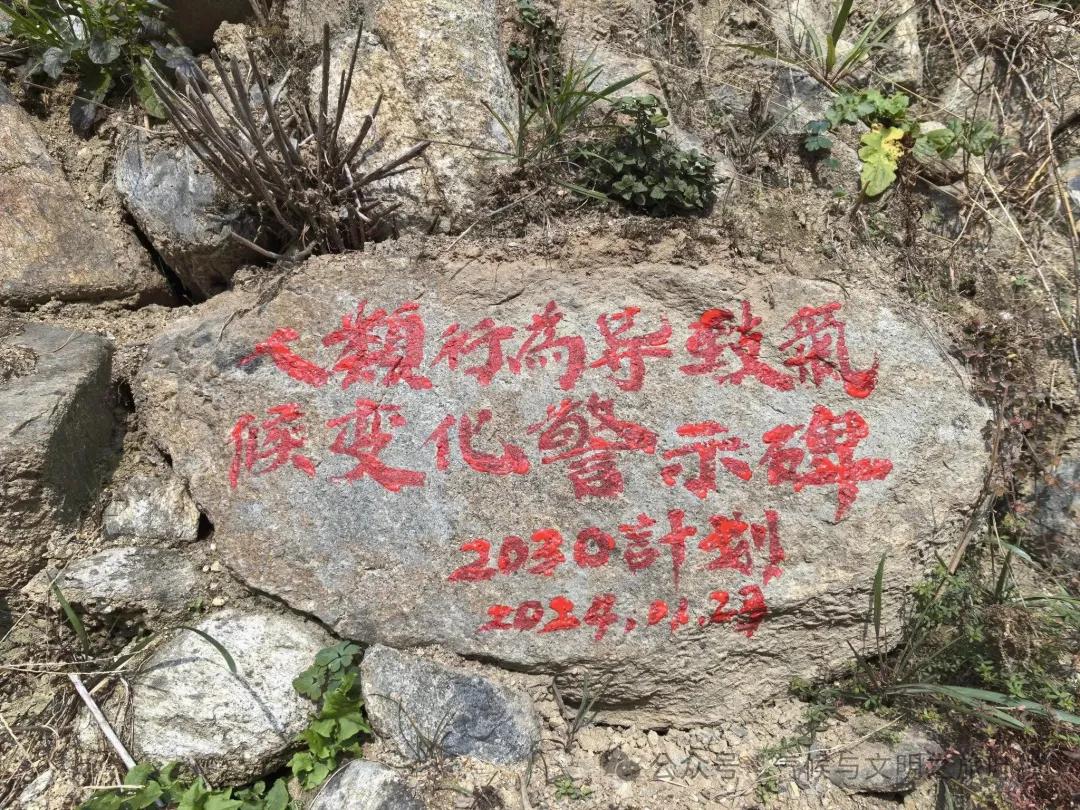 人類行为导致氣
候变化警示碑
2030計划
2024.11.27
公众号 气候与文明